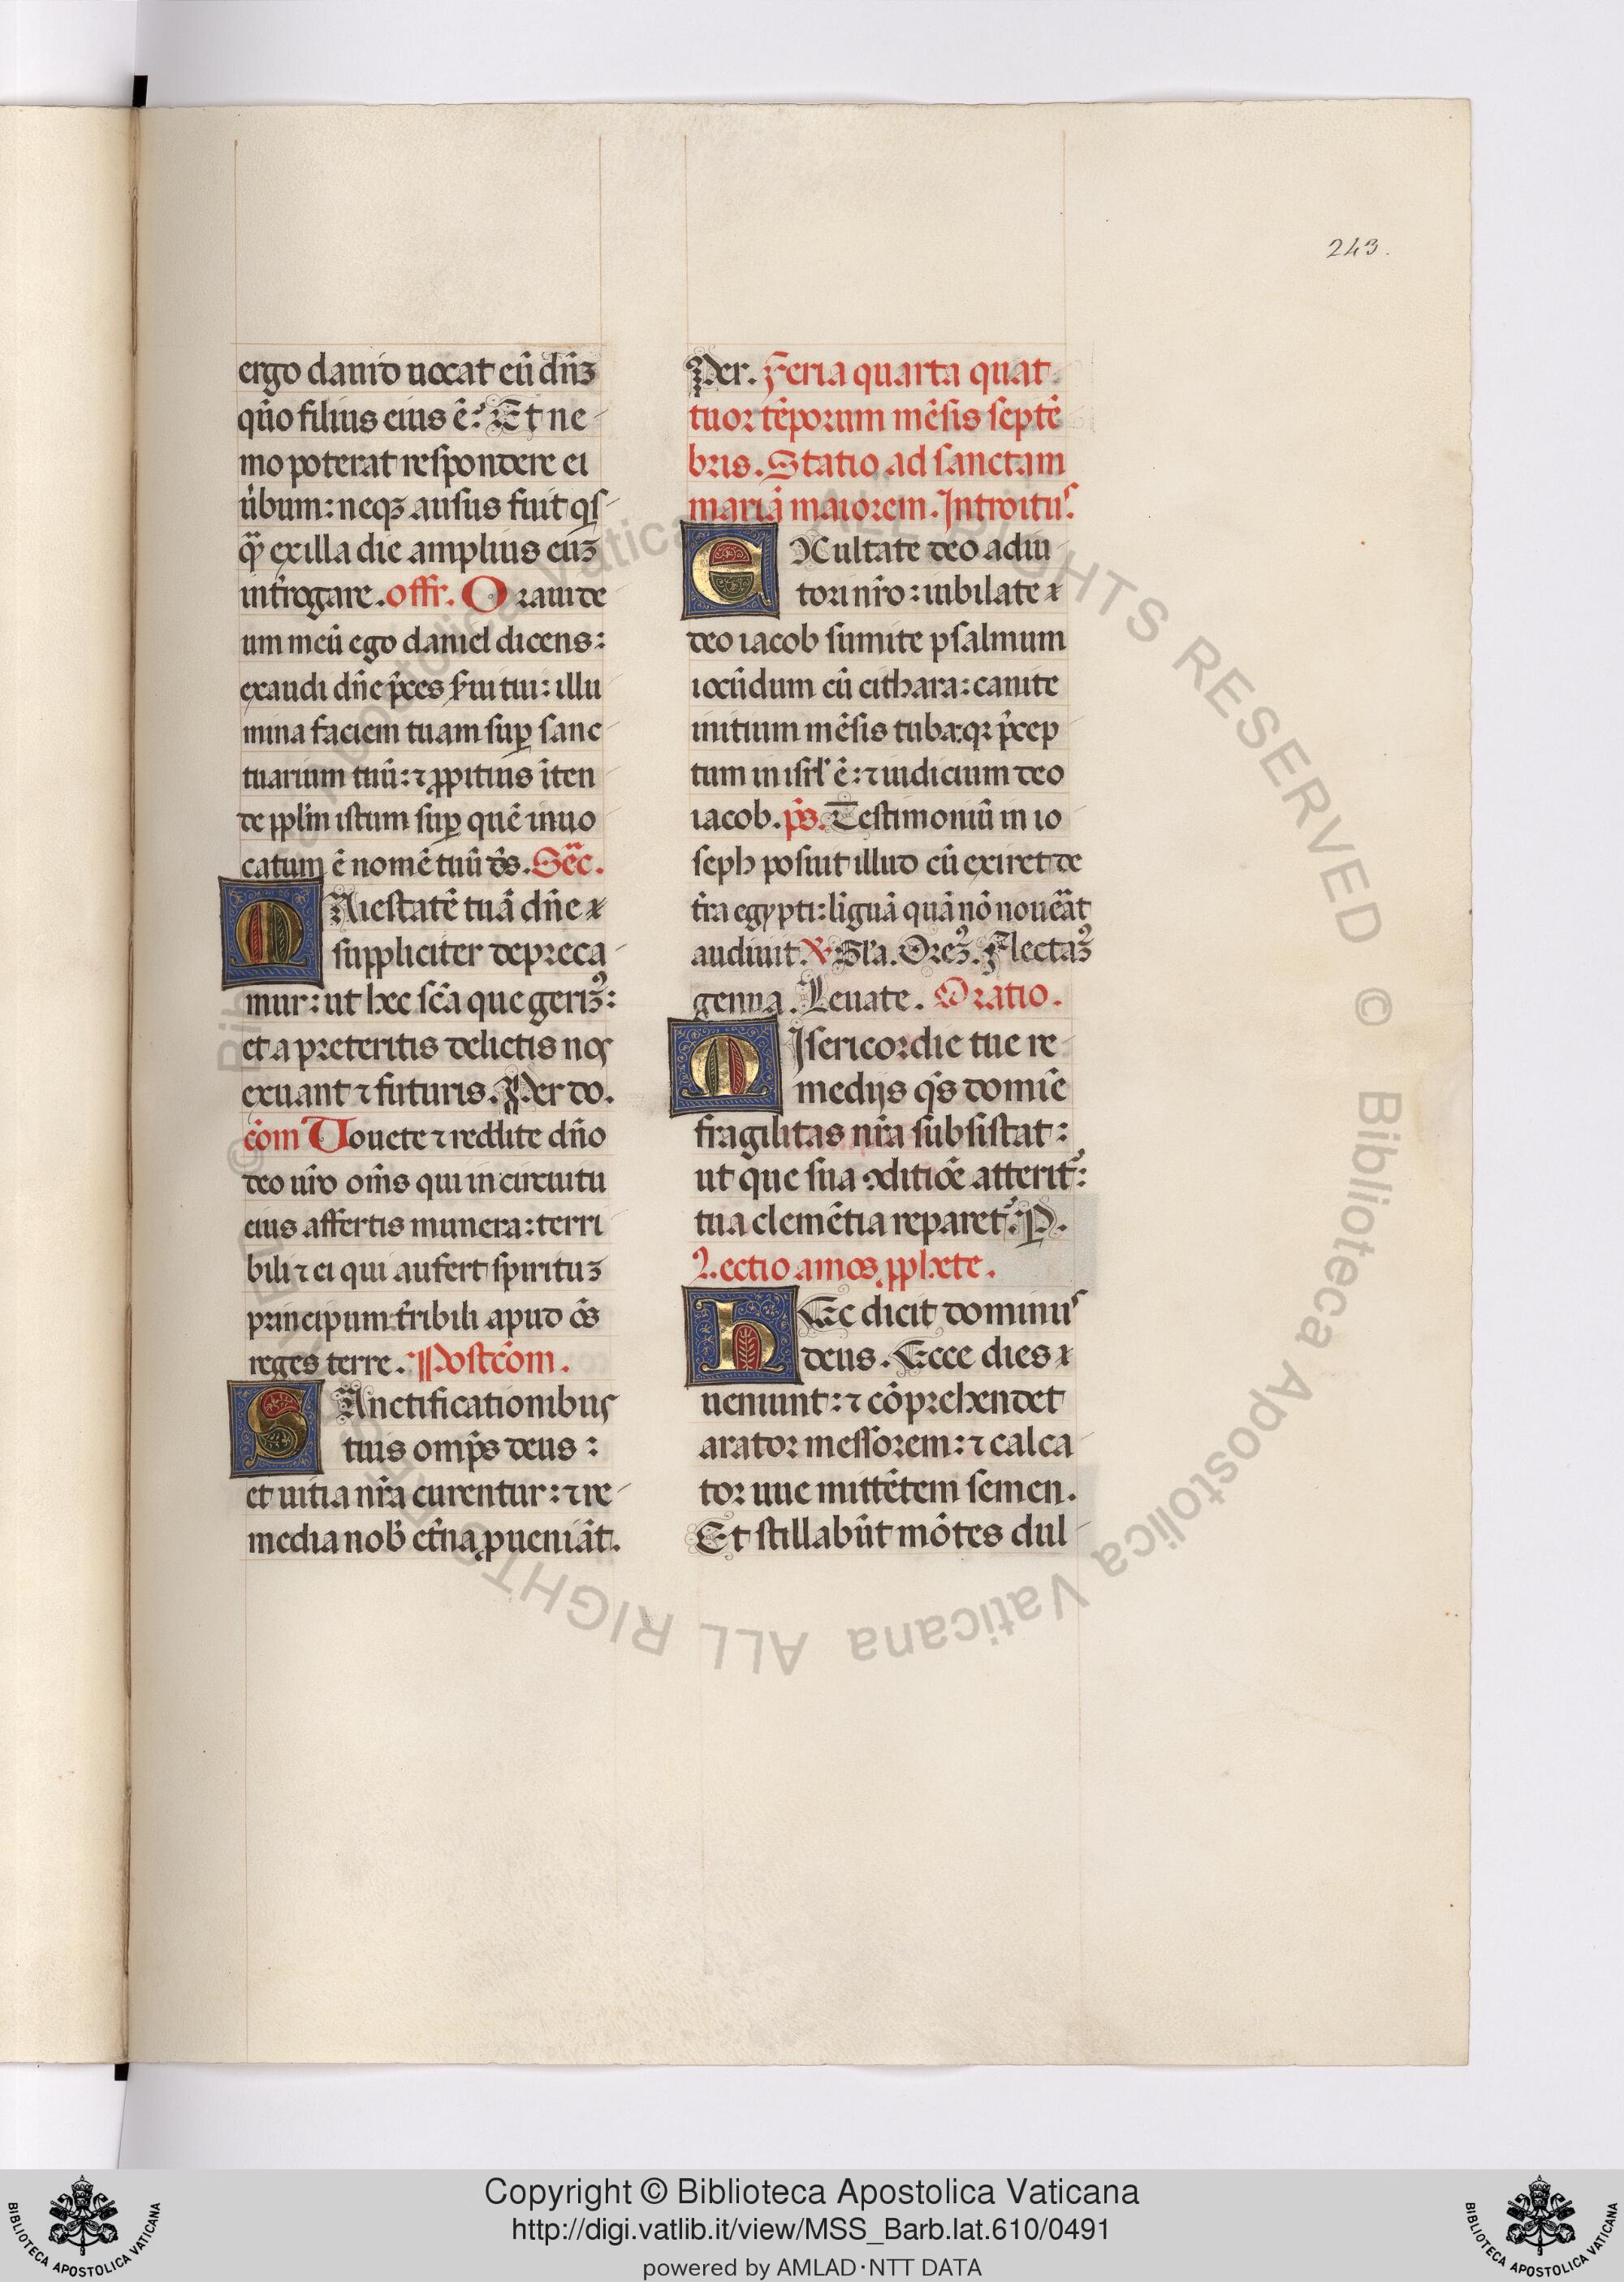 243.
ergo dauid uocat eũ dñꝫ
qũo filius eius ẽ? Et ne
mo poterat respondere ei
ũbum: neqꝫ ausus fuit qͥs
qͣ̃ ex illa die amplius euꝫ
inťrogare. offr. Oraui de
um meũ ego daniel dicens:
exaudi dñe p̃ces ẜui tui: illu
mina faciem tuam suꝑ sanc
tuarium tuũ: ⁊ ꝓpitius ĩten
de pplm̃ istum suꝑ quẽ inuo
catum ẽ nomẽ tuũ d̃s. Sec̃.
MAiestatẽ tuã dñe
suppliciter depreca
mur: ut hec sc̃a que gerimꝰ:
et a preteritis delictis nos
exuant ⁊ futuris. Per do.
c̃om Vouete ⁊ reddite dño
deo ur̃o om̃s qui in circuitu
eius affertis munera: terri
bili ⁊ ei qui aufert spirituꝫ
principum: ťribili apud om̃s
reges terre. Postc̃om.
SAnctificationibus
tuis omp̃s deus:
et uitia nr̃a curentur: ⁊ re
media nob̃ eťna ꝓueniãt.
Per. Feria quarta quat
tuor tẽporum mẽsis septẽ
bris. Statio ad sanctam
mariã maiorem. Introitus.
EXultate deo adiu
tori nr̃o: iubilate
deo iacob sumite psalmum
iocũdum cũ cithara: canite
initium mẽsis tuba: qꝛ p̃cep
tum in isrl̃ ẽ: ⁊ iudicium deo
iacob. p̃s. Testimoniũ in io
seph posuit illud cũ exiret de
ťra egypti: lĩguã quã nõ nouẽat
audiuit. ℣. Gl̃a. Orem̃ꝰ. Flectamꝰ
genua. Leuate. Oratio.
MIsericordie tue re
medijs q̃s domiẽ
fragilitas nr̃a subsistat:
ut que sua ꝯditiõe atteritᷣ:
tua clemẽtia reparetᷣ. P.
Lectio amos ꝓphete.
HEc dicit dominus
deus. Ecce dies
ueniunt: ⁊ cõprehendet
arator messorem: ⁊ calca
tor uue mittẽtem semen.
Et stillabũt mõtes dul
© Biblioteca Apostolica Vaticana ALL RIGHTS RESERVED © Biblioteca Apostolica Vaticana ALL RIGHTS RESERVED
Copyright © Biblioteca Apostolica Vaticana
http://digi.vatlib.it/view/MSS_Barb.lat.610/0491
powered by AMLAD·NTT DATA
BIBLIOTECA APOSTOLICA VATICANA
BIBLIOTECA APOSTOLICA VATICANA